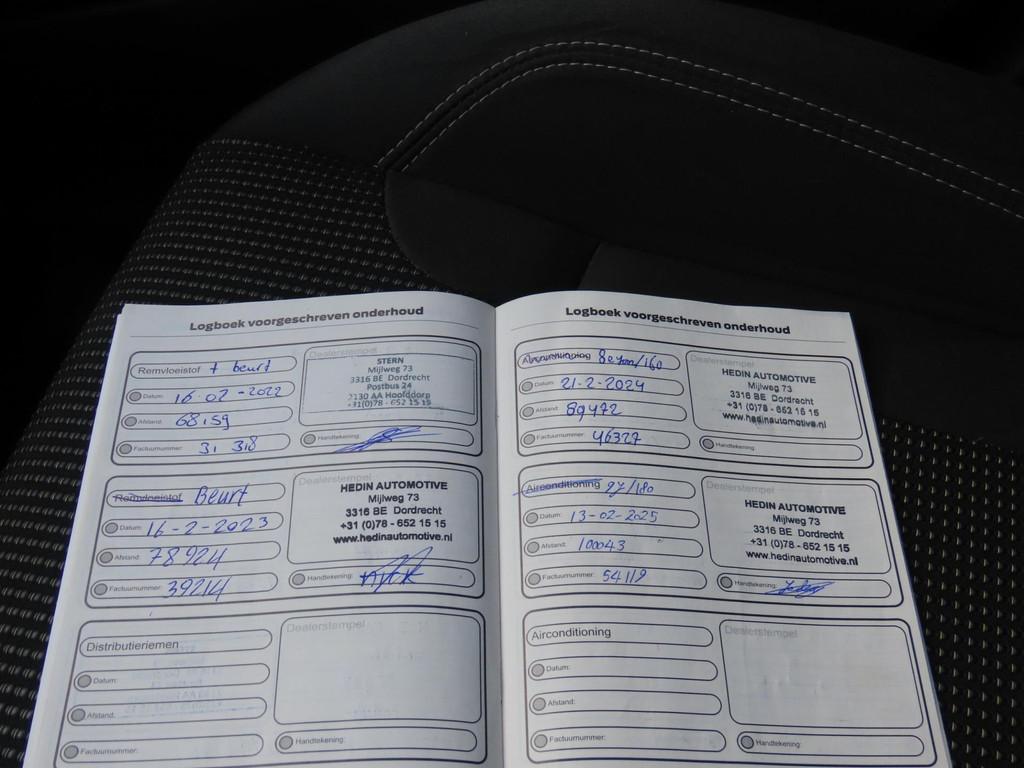 Logboek voorgeschreven onderhoud
Remvloeistof + beurt
Datum: 16-02-2022
Afstand: 68159
Factuurnummer: 31 318
Dealerstempel
STERN
Mijlweg 73
3316 BE Dordrecht
Postbus 24
2130 AA Hoofddorp
+31(0)78 - 652 15 15
Handtekening:
Remvloeistof Beurt
Datum: 16-2-2023
Afstand: 78924
Factuurnummer: 39214
Dealerstempel
HEDIN AUTOMOTIVE
Mijlweg 73
3316 BE Dordrecht
+31 (0)78 - 652 15 15
www.hedinautomotive.nl
Handtekening:
Distributieriemen
Datum:
Afstand:
Factuurnummer:
Dealerstempel
Handtekening:
Logboek voorgeschreven onderhoud
Datum: 21-2-2024
Afstand: 89472
Factuurnummer: 46327
Dealerstempel
HEDIN AUTOMOTIVE
Mijlweg 73
3316 BE Dordrecht
+31 (0)78 - 652 15 15
www.hedinautomotive.nl
Handtekening:
Airconditioning
Datum: 13-02-2025
Afstand: 100043
Factuurnummer: 54119
Dealerstempel
HEDIN AUTOMOTIVE
Mijlweg 73
3316 BE Dordrecht
+31 (0)78 - 652 15 15
www.hedinautomotive.nl
Handtekening:
Airconditioning
Datum:
Afstand:
Factuurnummer:
Dealerstempel
Handtekening: